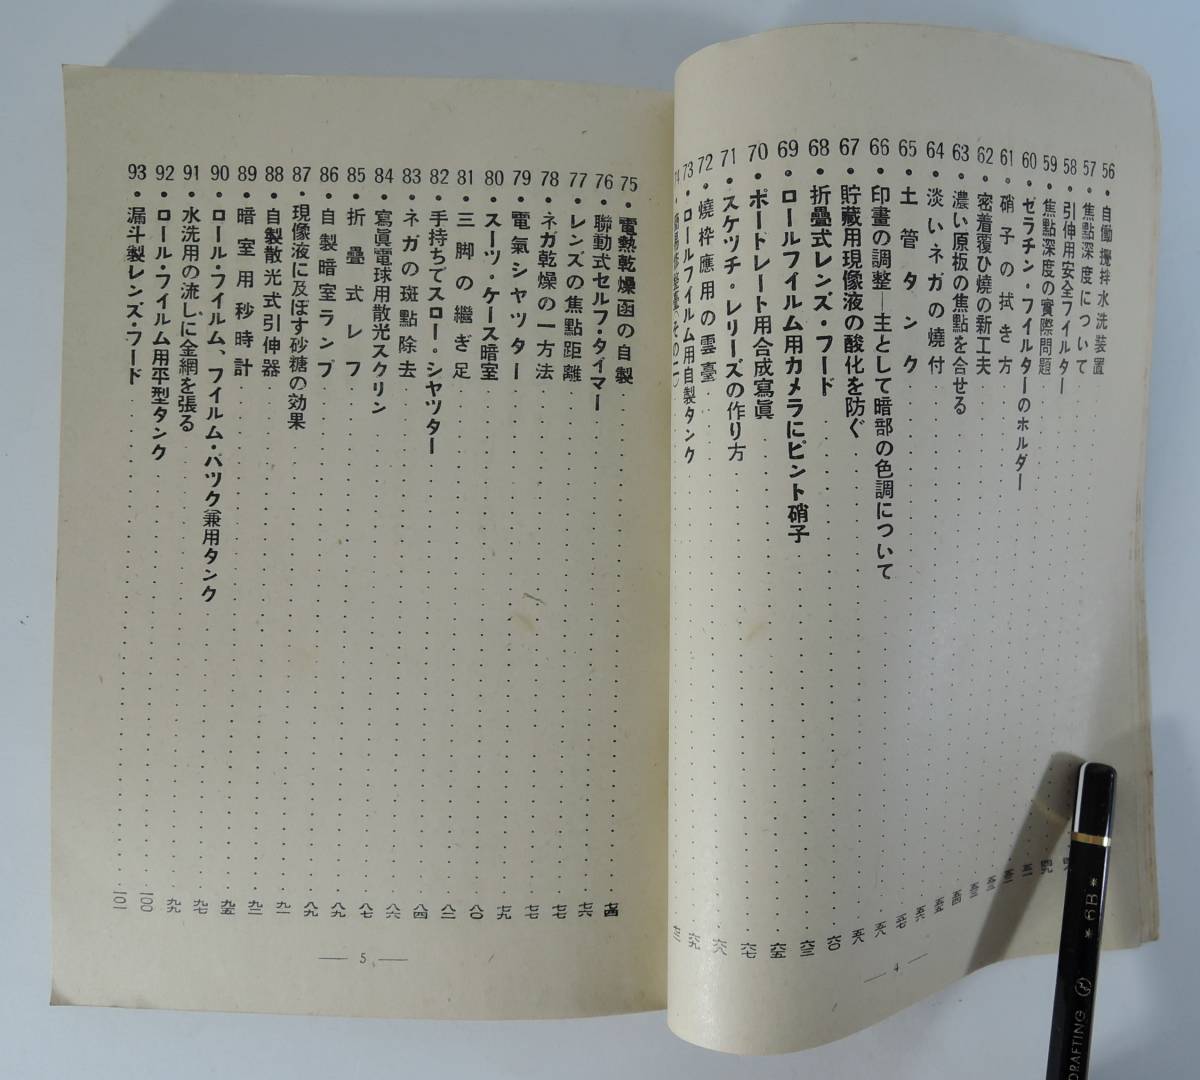 56・自働攪拌水洗装置
57・焦點深度について
58・引伸用安全フイルター
59・焦點深度の實際問題 四九
60・ゼラチン・フイルターのホルダー 五一
61・硝子の拭き方 五二
62・密着覆ひ燒の新工夫 五三
63・濃い原板の焦點を合せる 五四
64・淡いネガの燒付 五五
65・土管タンク 五六
66・印畫の調整―主として暗部の色調について 五七
67・貯藏用現像液の酸化を防ぐ 五八
68・折疊式レンズ・フード 五九
69・ロールフイルム用カメラにピント硝子 六〇
70・ポートレート用合成寫眞 六三
71・スケツチ・レリーズの作り方 六五
72・燒枠應用の雲臺 六七
73・ロールフイルム用自製タンク 六八
74
— 4 —
75・電熱乾燥函の自製 七四
76・聯動式セルフ・タイマー 七六
77・レンズの焦點距離 七七
78・ネガ乾燥の一方法 七七
79・電氣シヤツター 七九
80・スーツ・ケース暗室 八〇
81・三脚の繼ぎ足 八二
82・手持ちでスロー・シヤツター 八四
83・ネガの斑點除去 八六
84・寫眞電球用散光スクリン 八七
85・折疊式レフ 八九
86・自製暗室ランプ 八九
87・現像液に及ぼす砂糖の効果 九一
88・自製散光式引伸器 九二
89・暗室用秒時計 九五
90・ロール・フイルム、フイルム・パツク兼用タンク 九七
91・水洗用の流しに金網を張る 九九
92・ロール・フイルム用平型タンク 一〇〇
93・漏斗製レンズ・フード 一〇一
— 5 —
*6B*
DRAFTING